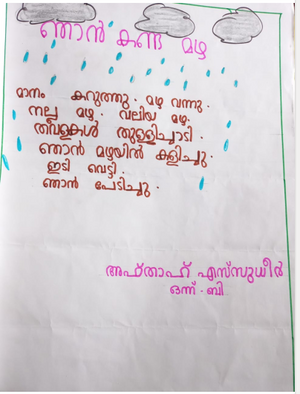 ഞാൻ കണ്ട മഴ
മാനം കറുത്തു. മഴ വന്നു.
നല്ല മഴ. വലിയ മഴ.
തവളകൾ തുള്ളിച്ചാടി.
ഞാൻ മഴയിൽ കളിച്ചു.
ഇടി വെട്ടി.
ഞാൻ പേടിച്ചു.
അഫ്താഹ് എസ്സുധീർ
ഒന്ന്. ബി